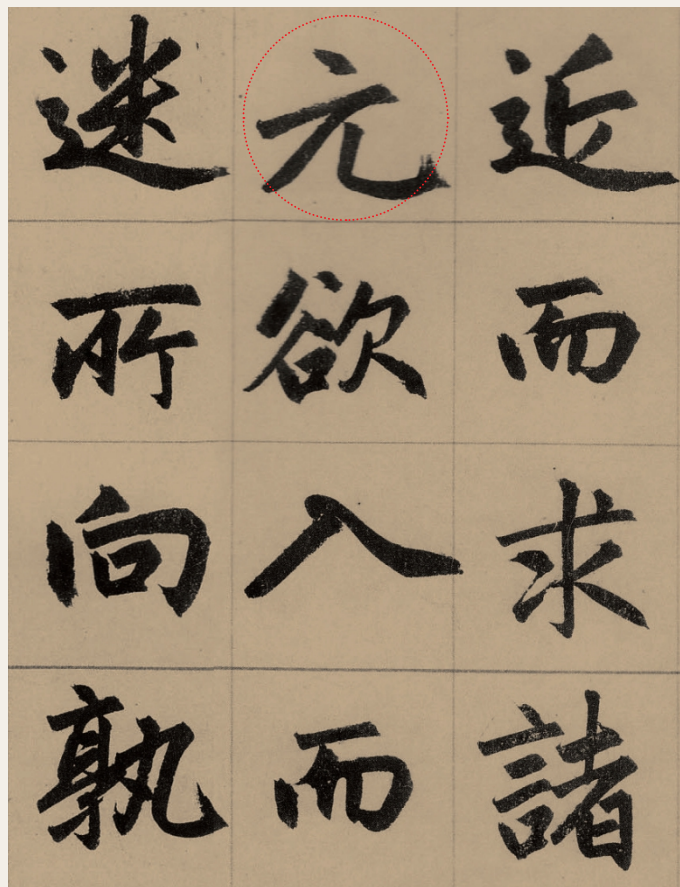 近而求諸
元欲入而
迷所向孰